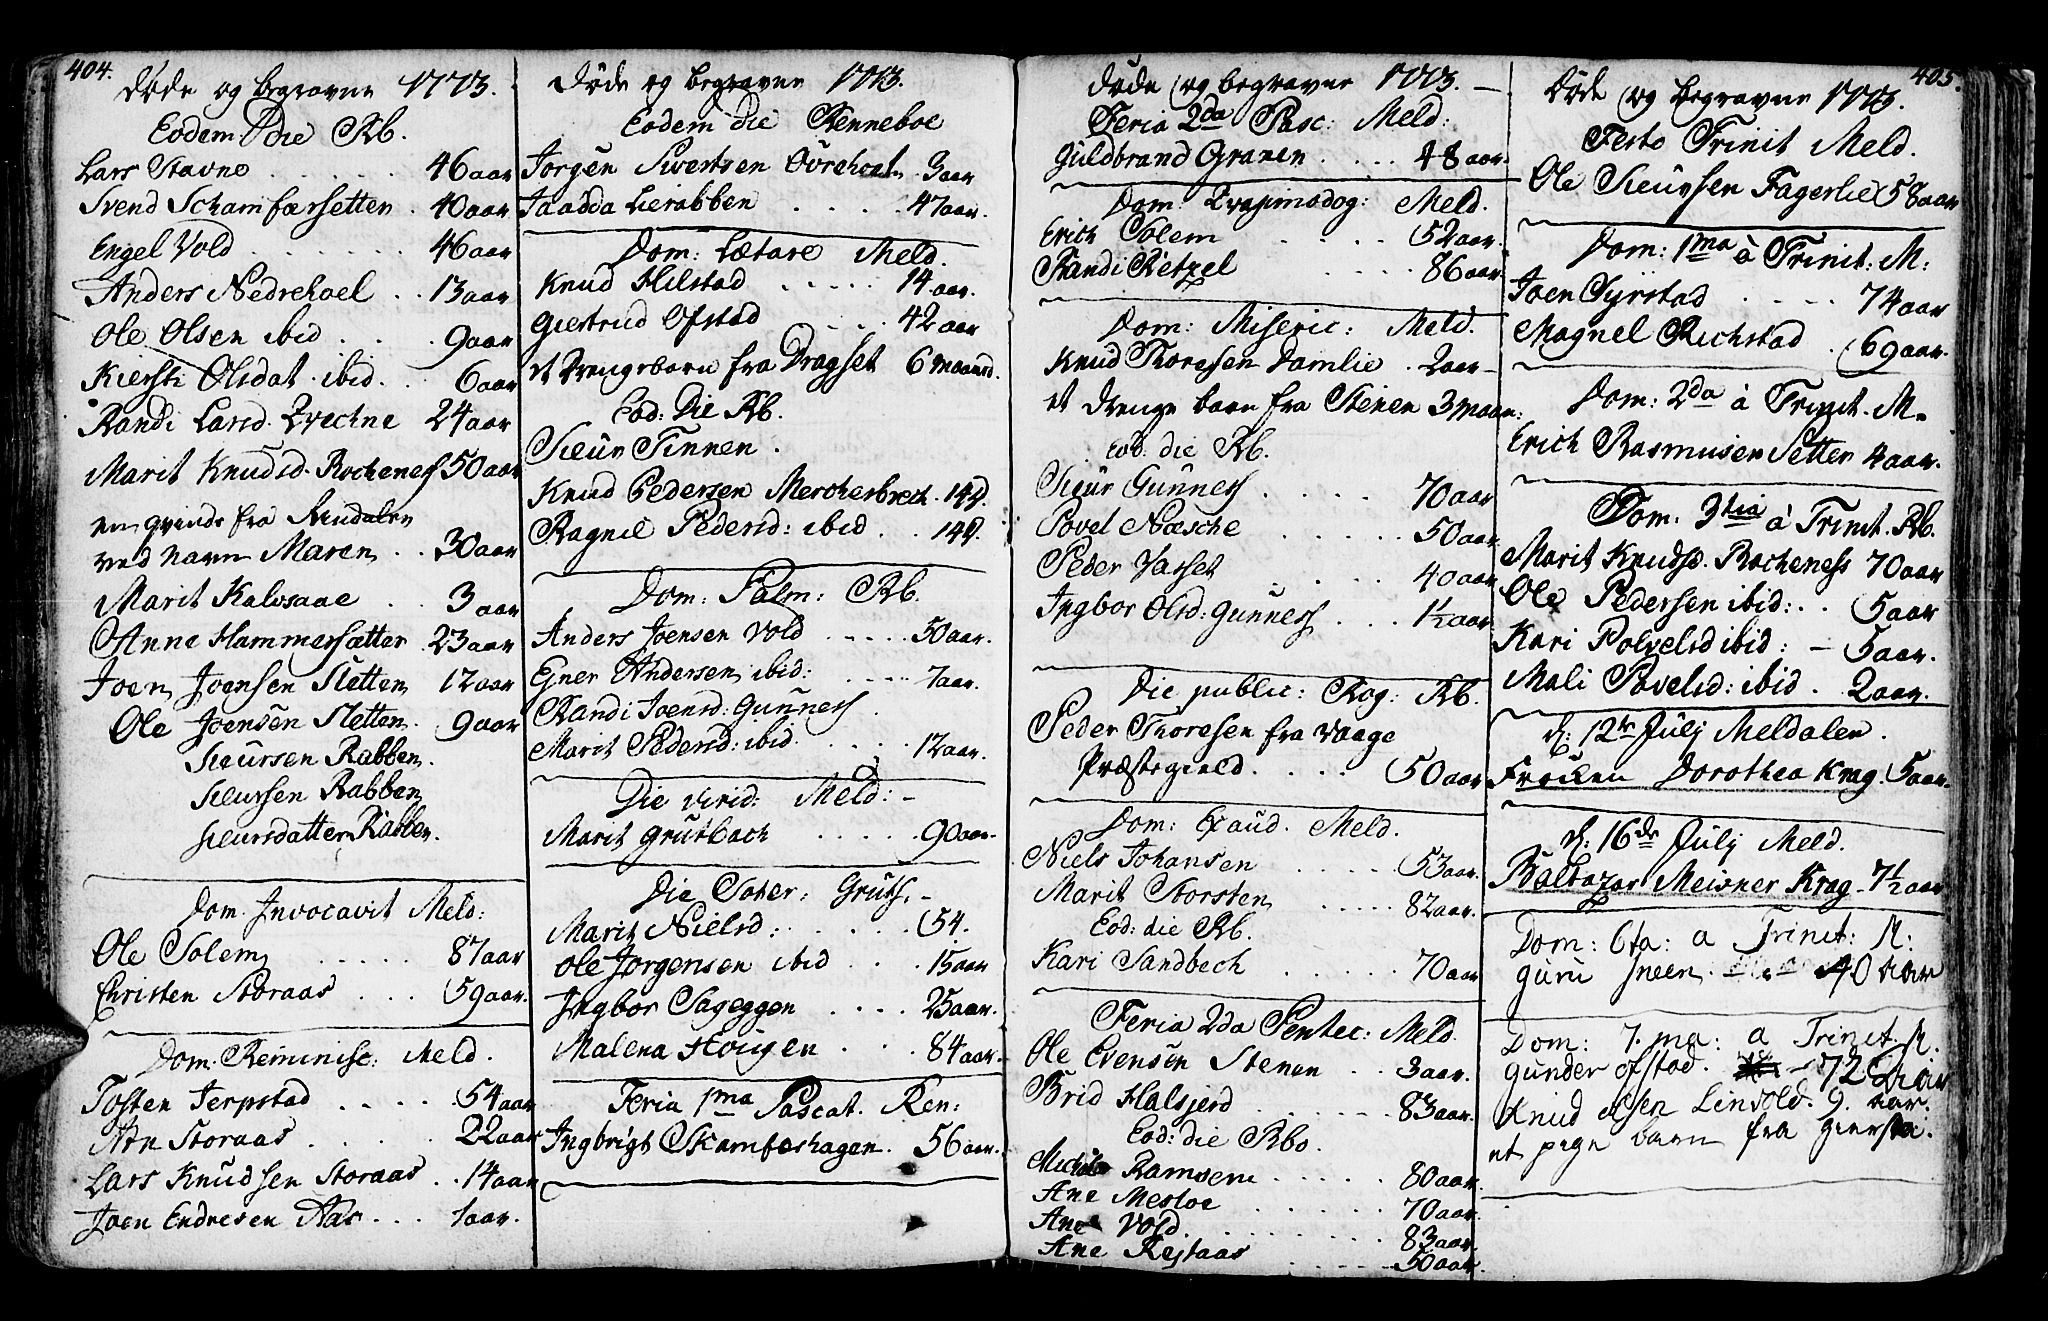 404.
Døde og begravne 1773.
Eodem Die Rb.
Lars Stavne . . . . . 46 aar
Svend Schamfærsetten . 40 aar
Engel Vold . . . . . 46 aar
Anders Nedrehoel . . 13 aar
Ole Olsen ibid . . . 9 aar
Kiersti Olsdat. ibid. . . 6 aar
Randi Larsd. 24 aar
Marit Knudsd. Rocheness 50 aar
en qvinde fra Rindalen
ved navn Maren . . 30 aar
Marit Kalvsaae . . 3 aar
Anne Hammersætter . 23 aar
Joen Joensen Sletten 12 aar
Ole Joensen Sletten . 9 aar
Sieursen Rabben.
Sieursen Rabben
Sieursdatter Rabben.
Dom. Invocavit Meld:
Ole Solem . . . . . 87 aar
Christen Storaas . . . 59 aar.
Dom: Reminisc: Meld.
Tosten Jerpstad . . . . 54 aar
Storaas . . . . . 22 aar
Lars Knudsen Storaas . . 14 aar
Joen Endresen Aas . . . 1 aar.
Døde og begravne 1773.
Eodem die Renneboe
Jorgen Sivertsen Övrehoel . 3 aar
Lierabben . . . . . 47 aar.
Dom: Lætare Meld.
Knud Hilstad . . . . . 14 aar.
Giertrud Ofstad . . . 42 aar
et Drengebarn fra Dragset 6 maaned.
Eod: Die Rb.
Sieur Tinnen .
Knud Pedersen Mercherbrech . 14 d.
Ragnil Pedersd: ibid . . 14 d.
Dom: Palm: Rb.
Anders Joensen Vold . . . . . 50 aar.
Ejner Andersen ibid: . . . . 7 aar.
Randi Joensd: Gunness .
Marit Pedersd: ibid. . . . . 12 aar.
Die virid: Meld: -
Marit Grutbach . . . . . 90 aar.
Die Gruts. -
Marit Nielsd: . . . . . . 54.
Ole Jorgensen ibid . . . 15 aar
Ingbor Sageggen . . . . 25 aar.
Malena Hougen . . . 84 aar.
Feria 1ma Pascat. Ren:
Ingbrigt Skamferhagen. . 56 aar.
Døde og begravne 1773. -
Feria 2da Pasc: Meld:
Guldbrand Granen . . . . 48 aar.
Dom: Meld.
Erich Solem . . . . 52 aar.
Randi Retzel . . . . . 86 aar.
Dom: Miseric: Meld.
Knud Thoresen Damlie . 2 aar -
et drenge barn fra Stenen 3 maan:
Eod: die Rb.
Sieur Gunness . . . . 70 aar
Povel Næsche . . . . . . 50 aar.
Peder Vasset . . . . . 40 aar
Ingbor Olsd: Gunness . . . 1½ aar
Die public: Rog: Rb.
Peder Thoresen fra Vaage
Præstegield. . . . . 50 aar
Dom: Exaud. Meld.
Niels Johansen . . . . 53 aar.
Marit Storsten . . . . . 82 aar.
Eod: die Rb.
Kari Sandbech . . . . . 70 aar
Feria 2da Pentec: Meld.
Ole Evensen Stenen . . 3 aar.
Brid Halsjerd . . . . . . 83 aar.
Eod: die Rbo.
Ramsem . . . . . . 80 aar.
Ane Mesloe . . . . . . . 70 aar.
Ane Vold . . . . . . . . . 83 aar.
Ane . . . . . 50 aar.
405.
Døde og begravne 1773.
Festo Trinit Meld.
Ole Sieursen Fagerlie 58 aar
Dom: 1ma à Trinit: M:
Joen Syrstad . . . . 74 aar
Magnel Richstad . 69 aar.
Dom: 2da à Trinit. M.
Erich Rasmusen Setter 4 aar.
Dom: 3tia à Trinit. Rb.
Marit Knudsd. Rocheness 70 aar
Ole Pedersen ibid: . . 5 aar
Kari Polvelsd ibid: - 5 aar.
Mali Povelsd: ibid . 2 aar.
d: 12te Julj Meldalen.
Frøken Dorothea Krag. 5 aar.
d: 16de Julj Meld.
Baltazar Meisner Krag - 7½ aar
Dom: 6ta: a Trinit: M:
Guru Sneen. 40 aar
Dom: 7.ma: a Trinit. M:
Gunder ofstad. - 72 aar
Knud olsen Linvold. 9. aar.
et pige barn fra